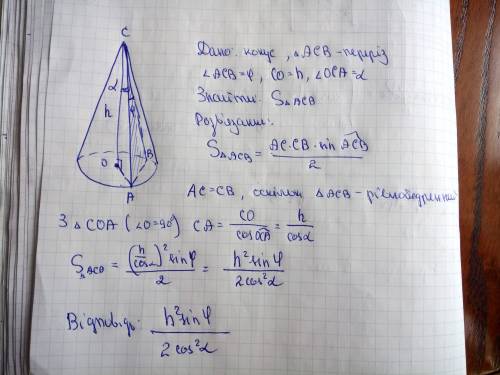 C
α
φ
h
O
B
A
Дано: конус, △ACB - переріз
∠ACB=φ, CO=h, ∠OCA=α
Знайти: S△ACB
Розв'язання:
S△ACB = AC·CB·sin ACB / 2
AC=CB, оскільки △ACB - рівнобедрений
З △COA (∠O=90°) CA = CO / cos OCA = h / cosα
S△ACB = (h/cosα)² sinφ / 2 = h² sinφ / 2cos²α
Відповідь: h² sinφ / 2cos²α